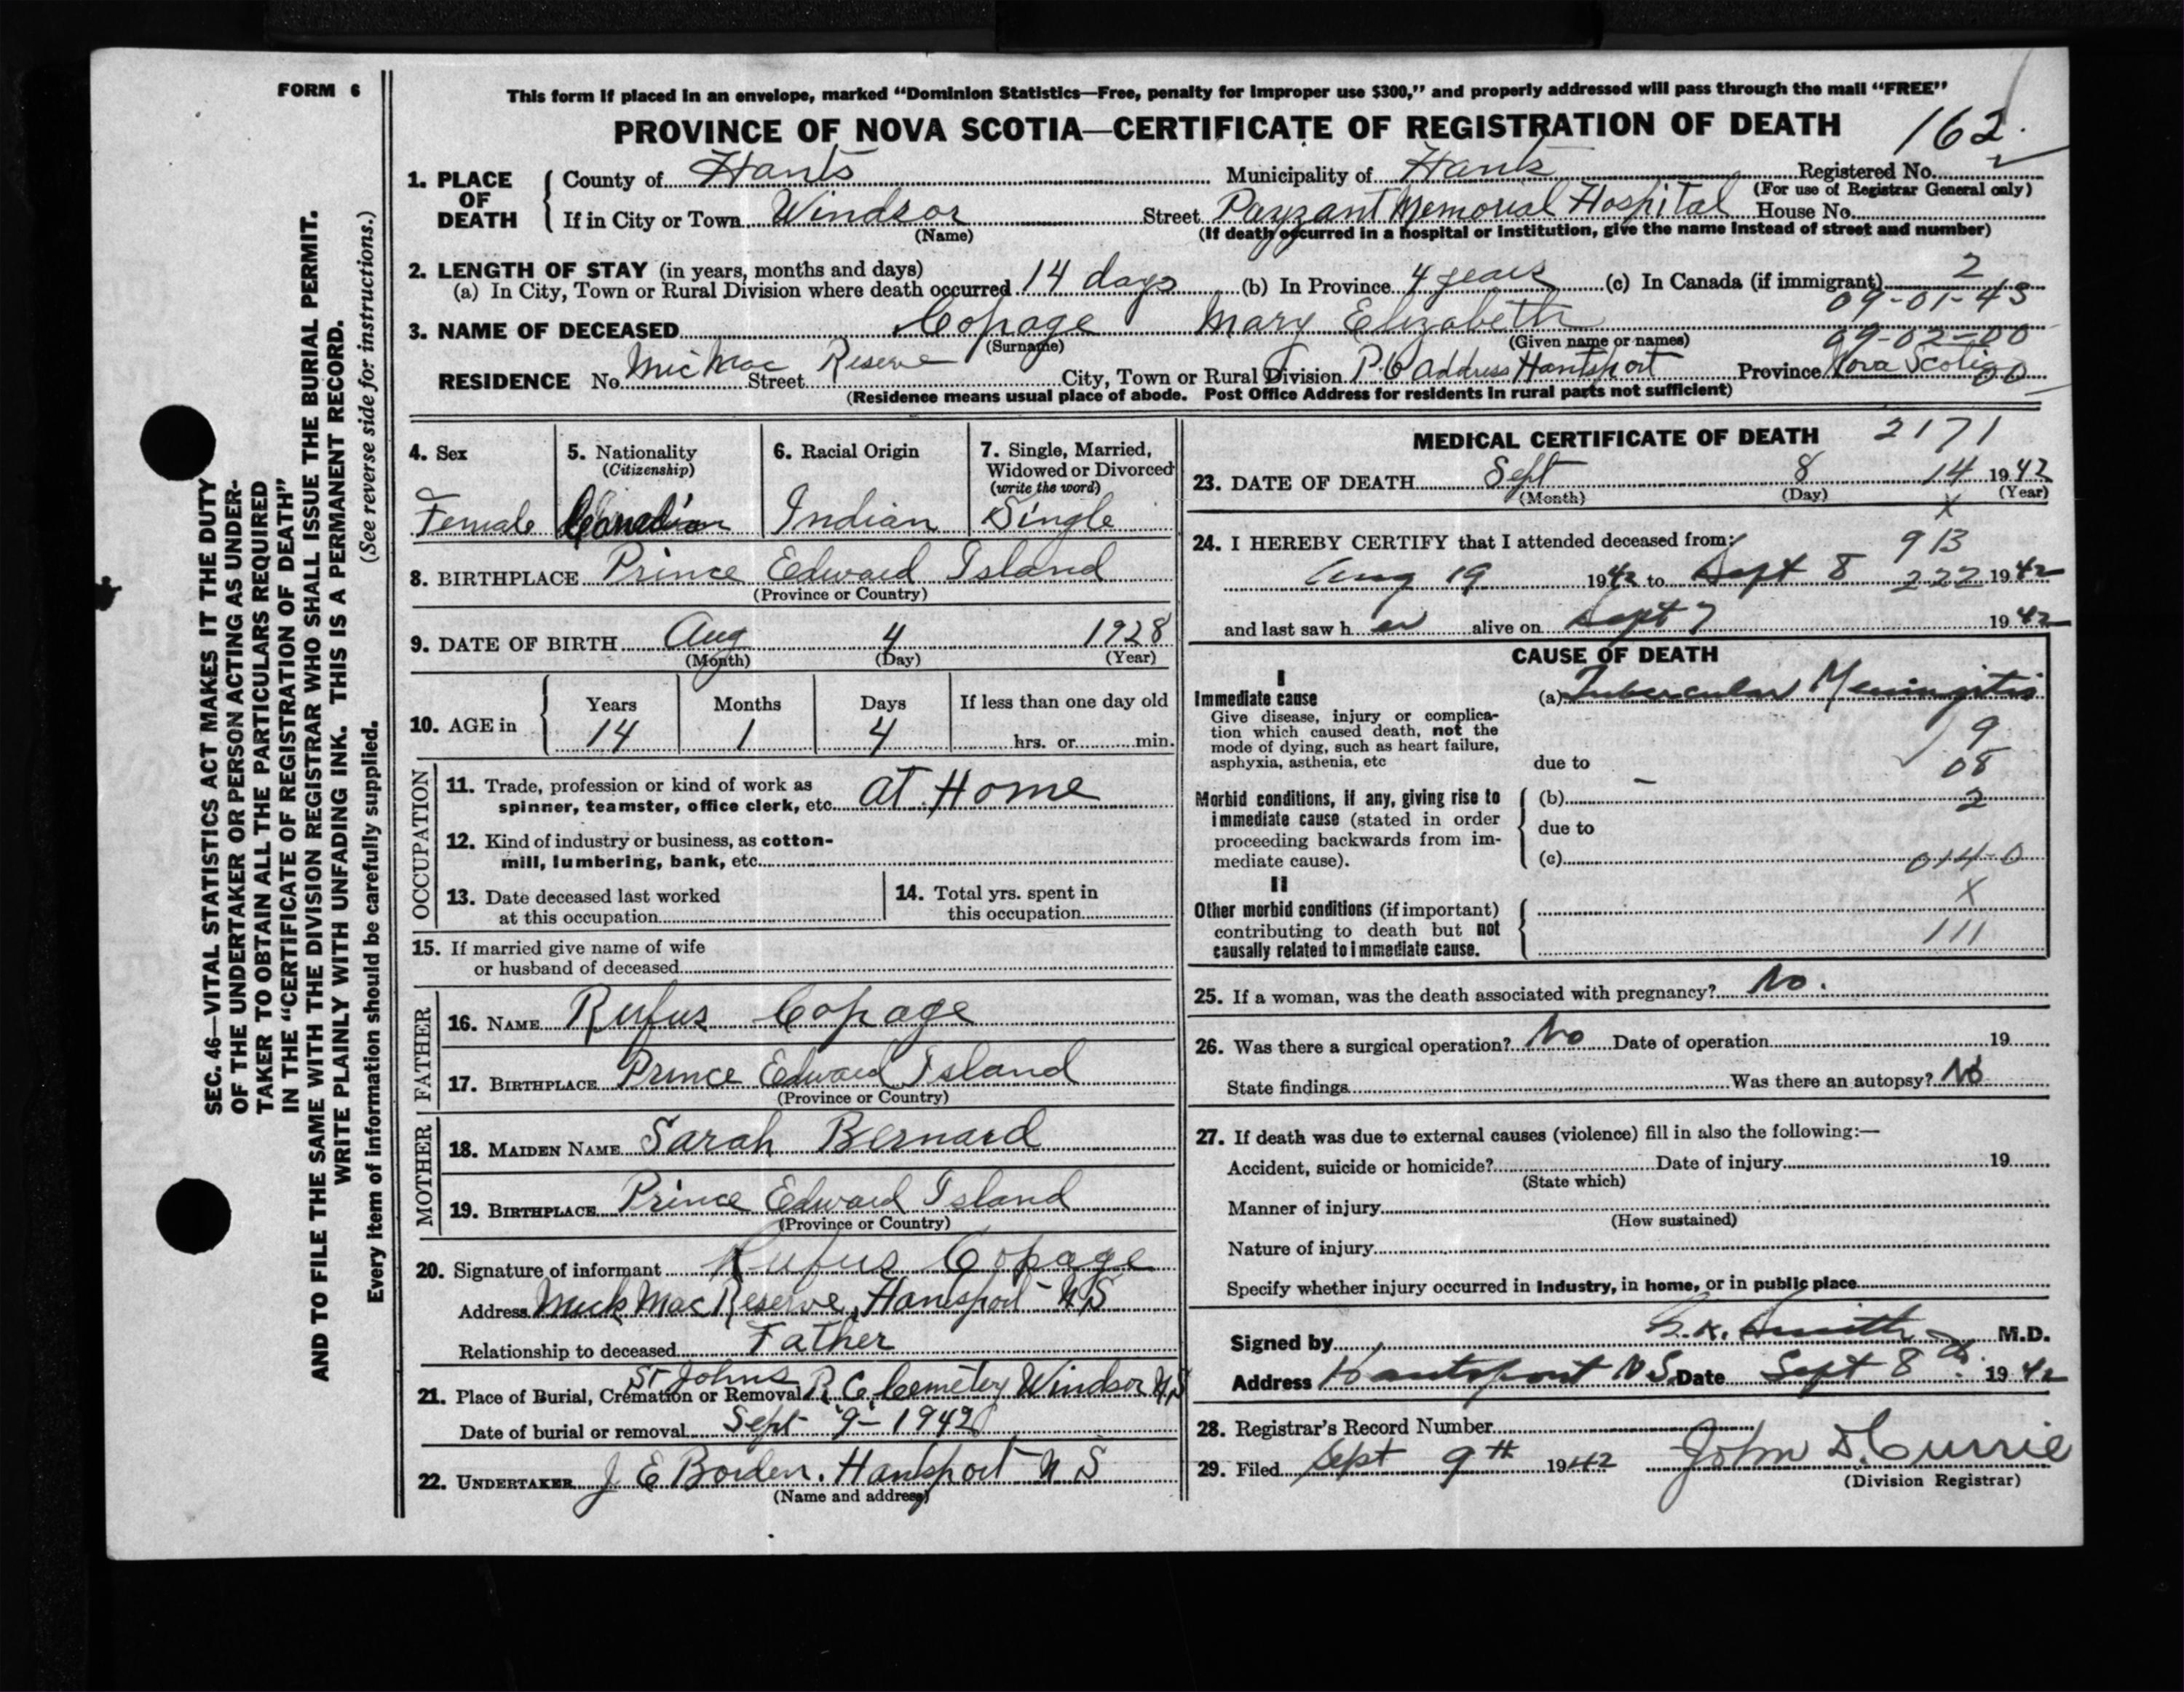 FORM 6
This form if placed in an envelope, marked “Dominion Statistics—Free, penalty for improper use $300,” and properly addressed will pass through the mail “FREE”
PROVINCE OF NOVA SCOTIA—CERTIFICATE OF REGISTRATION OF DEATH
162
SEC. 46—VITAL STATISTICS ACT MAKES IT THE DUTY
OF THE UNDERTAKER OR PERSON ACTING AS UNDER-
TAKER TO OBTAIN ALL THE PARTICULARS REQUIRED
IN THE “CERTIFICATE OF REGISTRATION OF DEATH”
AND TO FILE THE SAME WITH THE DIVISION REGISTRAR WHO SHALL ISSUE THE BURIAL PERMIT.
WRITE PLAINLY WITH UNFADING INK. THIS IS A PERMANENT RECORD.
(See reverse side for instructions.)
Every item of information should be carefully supplied.
1. PLACE OF DEATH
County of Hants Municipality of Hants Registered No.
(For use of Registrar General only)
If in City or Town Windsor Street Payzant Memorial Hospital House No.
(Name) (If death occurred in a hospital or institution, give the name instead of street and number)
2. LENGTH OF STAY (in years, months and days)
(a) In City, Town or Rural Division where death occurred 14 days (b) In Province 4 years (c) In Canada (if immigrant) 2
09-01-45
3. NAME OF DECEASED Copage Mary Elizabeth
(Surname) (Given name or names) 09-02-00
RESIDENCE No. MicMac Street Reserve City, Town or Rural Division P.O address Hantsport Province Nova Scotia 00
(Residence means usual place of abode. Post Office Address for residents in rural parts not sufficient)
4. Sex Female
5. Nationality (Citizenship) Canadian
6. Racial Origin Indian
7. Single, Married, Widowed or Divorced (write the word) Single
8. BIRTHPLACE Prince Edward Island
(Province or Country)
9. DATE OF BIRTH Aug 4 1928
(Month) (Day) (Year)
10. AGE in Years 14 Months 1 Days 4 If less than one day old hrs. or min.
OCCUPATION
11. Trade, profession or kind of work as
spinner, teamster, office clerk, etc. at Home
12. Kind of industry or business, as cotton-
mill, lumbering, bank, etc.
13. Date deceased last worked
at this occupation
14. Total yrs. spent in
this occupation
15. If married give name of wife
or husband of deceased
FATHER
16. NAME Rufus Copage
17. BIRTHPLACE Prince Edward Island
(Province or Country)
MOTHER
18. MAIDEN NAME Sarah Bernard
19. BIRTHPLACE Prince Edward Island
(Province or Country)
20. Signature of informant Rufus Copage
Address Mick Mac Reserve, Hantsport NS
Relationship to deceased Father
21. Place of Burial, Cremation or Removal St Johns R C Cemetery Windsor NS
Date of burial or removal Sept 9 - 1942
22. UNDERTAKER J E Borden. Hantsport N S
(Name and address)
MEDICAL CERTIFICATE OF DEATH 2171
23. DATE OF DEATH Sept 8 14 1942
(Month) (Day) (Year)
X
24. I HEREBY CERTIFY that I attended deceased from: 913
Aug 19 1942 to Sept 8 222 1942
and last saw her alive on Sept 7 1942
CAUSE OF DEATH
I
Immediate cause
Give disease, injury or complica-
tion which caused death, not the
mode of dying, such as heart failure,
asphyxia, asthenia, etc
(a) Tubercular Meningitis
9
due to 08
Morbid conditions, if any, giving rise to
immediate cause (stated in order
proceeding backwards from im-
mediate cause).
(b) – 2
due to
(c) 014-0
II
Other morbid conditions (if important)
contributing to death but not
causally related to immediate cause.
X
111
25. If a woman, was the death associated with pregnancy? No.
26. Was there a surgical operation? No Date of operation 19
State findings Was there an autopsy? No
27. If death was due to external causes (violence) fill in also the following:—
Accident, suicide or homicide? Date of injury 19
(State which)
Manner of injury
(How sustained)
Nature of injury
Specify whether injury occurred in industry, in home, or in public place
Signed by K. Smith M.D.
Address Hantsport N S. Date Sept 8 1942
28. Registrar's Record Number
29. Filed Sept 9th 1942 John D. Currie
(Division Registrar)